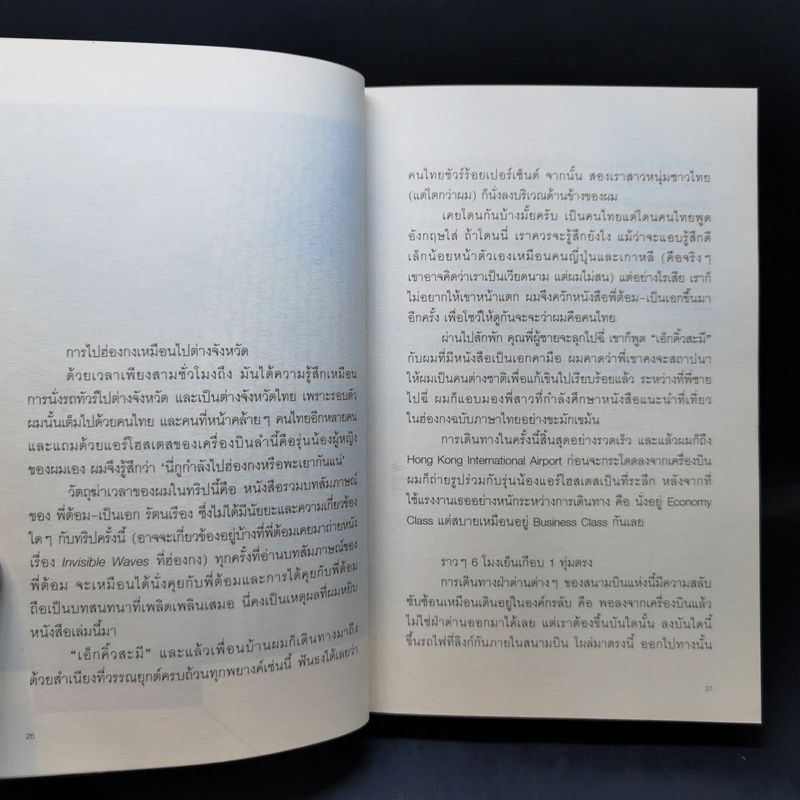 การไปฮ่องกงเหมือนไปต่างจังหวัด
ด้วยเวลาเพียงสามชั่วโมงถึง มันได้ความรู้สึกเหมือน
การนั่งรถทัวร์ไปต่างจังหวัด และเป็นต่างจังหวัดไทย เพราะรอบตัว
ผมนั้นเต็มไปด้วยคนไทย และคนที่หน้าคล้ายๆ คนไทยอีกหลายคน
และแถมด้วยแอร์โฮสเตสของเครื่องบินลำนี้คือรุ่นน้องผู้หญิง
ของผมเอง ผมจึงรู้สึกว่า ‘นี่กูกำลังไปฮ่องกงหรือพะเยากันแน่’
วัตถุฆ่าเวลาของผมในทริปนี้คือ หนังสือรวมบทสัมภาษณ์
ของ พี่ต้อม-เป็นเอก รัตนเรือง ซึ่งไม่ได้มีนัยยะและความเกี่ยวข้อง
ใดๆ กับทริปครั้งนี้ (อาจจะเกี่ยวข้องอยู่บ้างที่พี่ต้อมเคยมาถ่ายหนัง
เรื่อง Invisible Waves ที่ฮ่องกง) ทุกครั้งที่อ่านบทสัมภาษณ์ของ
พี่ต้อม จะเหมือนได้นั่งคุยกับพี่ต้อมและการได้คุยกับพี่ต้อม
ถือเป็นบทสนทนาที่เพลิดเพลินเสมอ นี่คงเป็นเหตุผลที่ผมหยิบ
หนังสือเล่มนี้มา
“เอ็กคิ้วสะมี” และแล้วเพื่อนบ้านผมก็เดินทางมาถึง
ด้วยสำเนียงที่วรรณยุกต์ครบถ้วนทุกพยางค์เช่นนี้ ฟันธงได้เลยว่า
26
คนไทยชัวร์ร้อยเปอร์เซ็นต์ จากนั้น สองเราสาวหนุ่มชาวไทย
(แต่โตกว่าผม) ก็นั่งลงบริเวณด้านข้างของผม
เคยโดนกันบ้างมั้ยครับ เป็นคนไทยแต่โดนคนไทยพูด
อังกฤษใส่ ถ้าโดนนี่ เราควรจะรู้สึกยังไง แม้ว่าจะแอบรู้สึกดี
เล็กน้อยหน้าตัวเองเหมือนคนญี่ปุ่นและเกาหลี (คือจริงๆ
เขาอาจคิดว่าเราเป็นเวียดนาม แต่ผมไม่สน) แต่อย่างไรเสีย เราก็
ไม่อยากให้เขาหน้าแตก ผมจึงควักหนังสือพี่ต้อม-เป็นเอกขึ้นมา
อีกครั้ง เพื่อโชว์ให้ดูกันจะจะว่าผมคือคนไทย
ผ่านไปสักพัก คุณพี่ผู้ชายจะลุกไปฉี่ เขาก็พูด “เอ็กคิ้วสะมี”
กับผมที่มีหนังสือเป็นเอกคามือ ผมคาดว่าพี่เขาคงจะสถาปนา
ให้ผมเป็นคนต่างชาติเพื่อแก้เขินไปเรียบร้อยแล้ว ระหว่างที่พี่ชาย
ไปฉี่ ผมก็แอบมองพี่สาวที่กำลังศึกษาหนังสือแนะนำที่เที่ยว
ในฮ่องกงฉบับภาษาไทยอย่างขะมักเขม้น
การเดินทางในครั้งนี้สิ้นสุดอย่างรวดเร็ว และแล้วผมก็ถึง
Hong Kong International Airport ก่อนจะกระโดดลงจากเครื่องบิน
ผมก็ถ่ายรูปร่วมกับรุ่นน้องแอร์โฮสเตสเป็นที่ระลึก หลังจากที่
ใช้แรงงานเธออย่างหนักระหว่างการเดินทาง คือ นั่งอยู่ Economy
Class แต่สบายเหมือนอยู่ Business Class กันเลย
ราวๆ 6 โมงเย็นเกือบ 1 ทุ่มตรง
การเดินทางฝ่าด่านต่างๆ ของสนามบินแห่งนี้มีความสลับ
ซับซ้อนเหมือนเดินอยู่ในองค์กรลับ คือ พอลงจากเครื่องบินแล้ว
ไม่ใช่ฝ่าด่านออกมาได้เลย แต่เราต้องขึ้นบันไดนั้น ลงบันไดนี้
ขึ้นรถไฟที่ลิงก์กันภายในสนามบิน โผล่มาตรงนี้ ออกไปทางนั้น
27